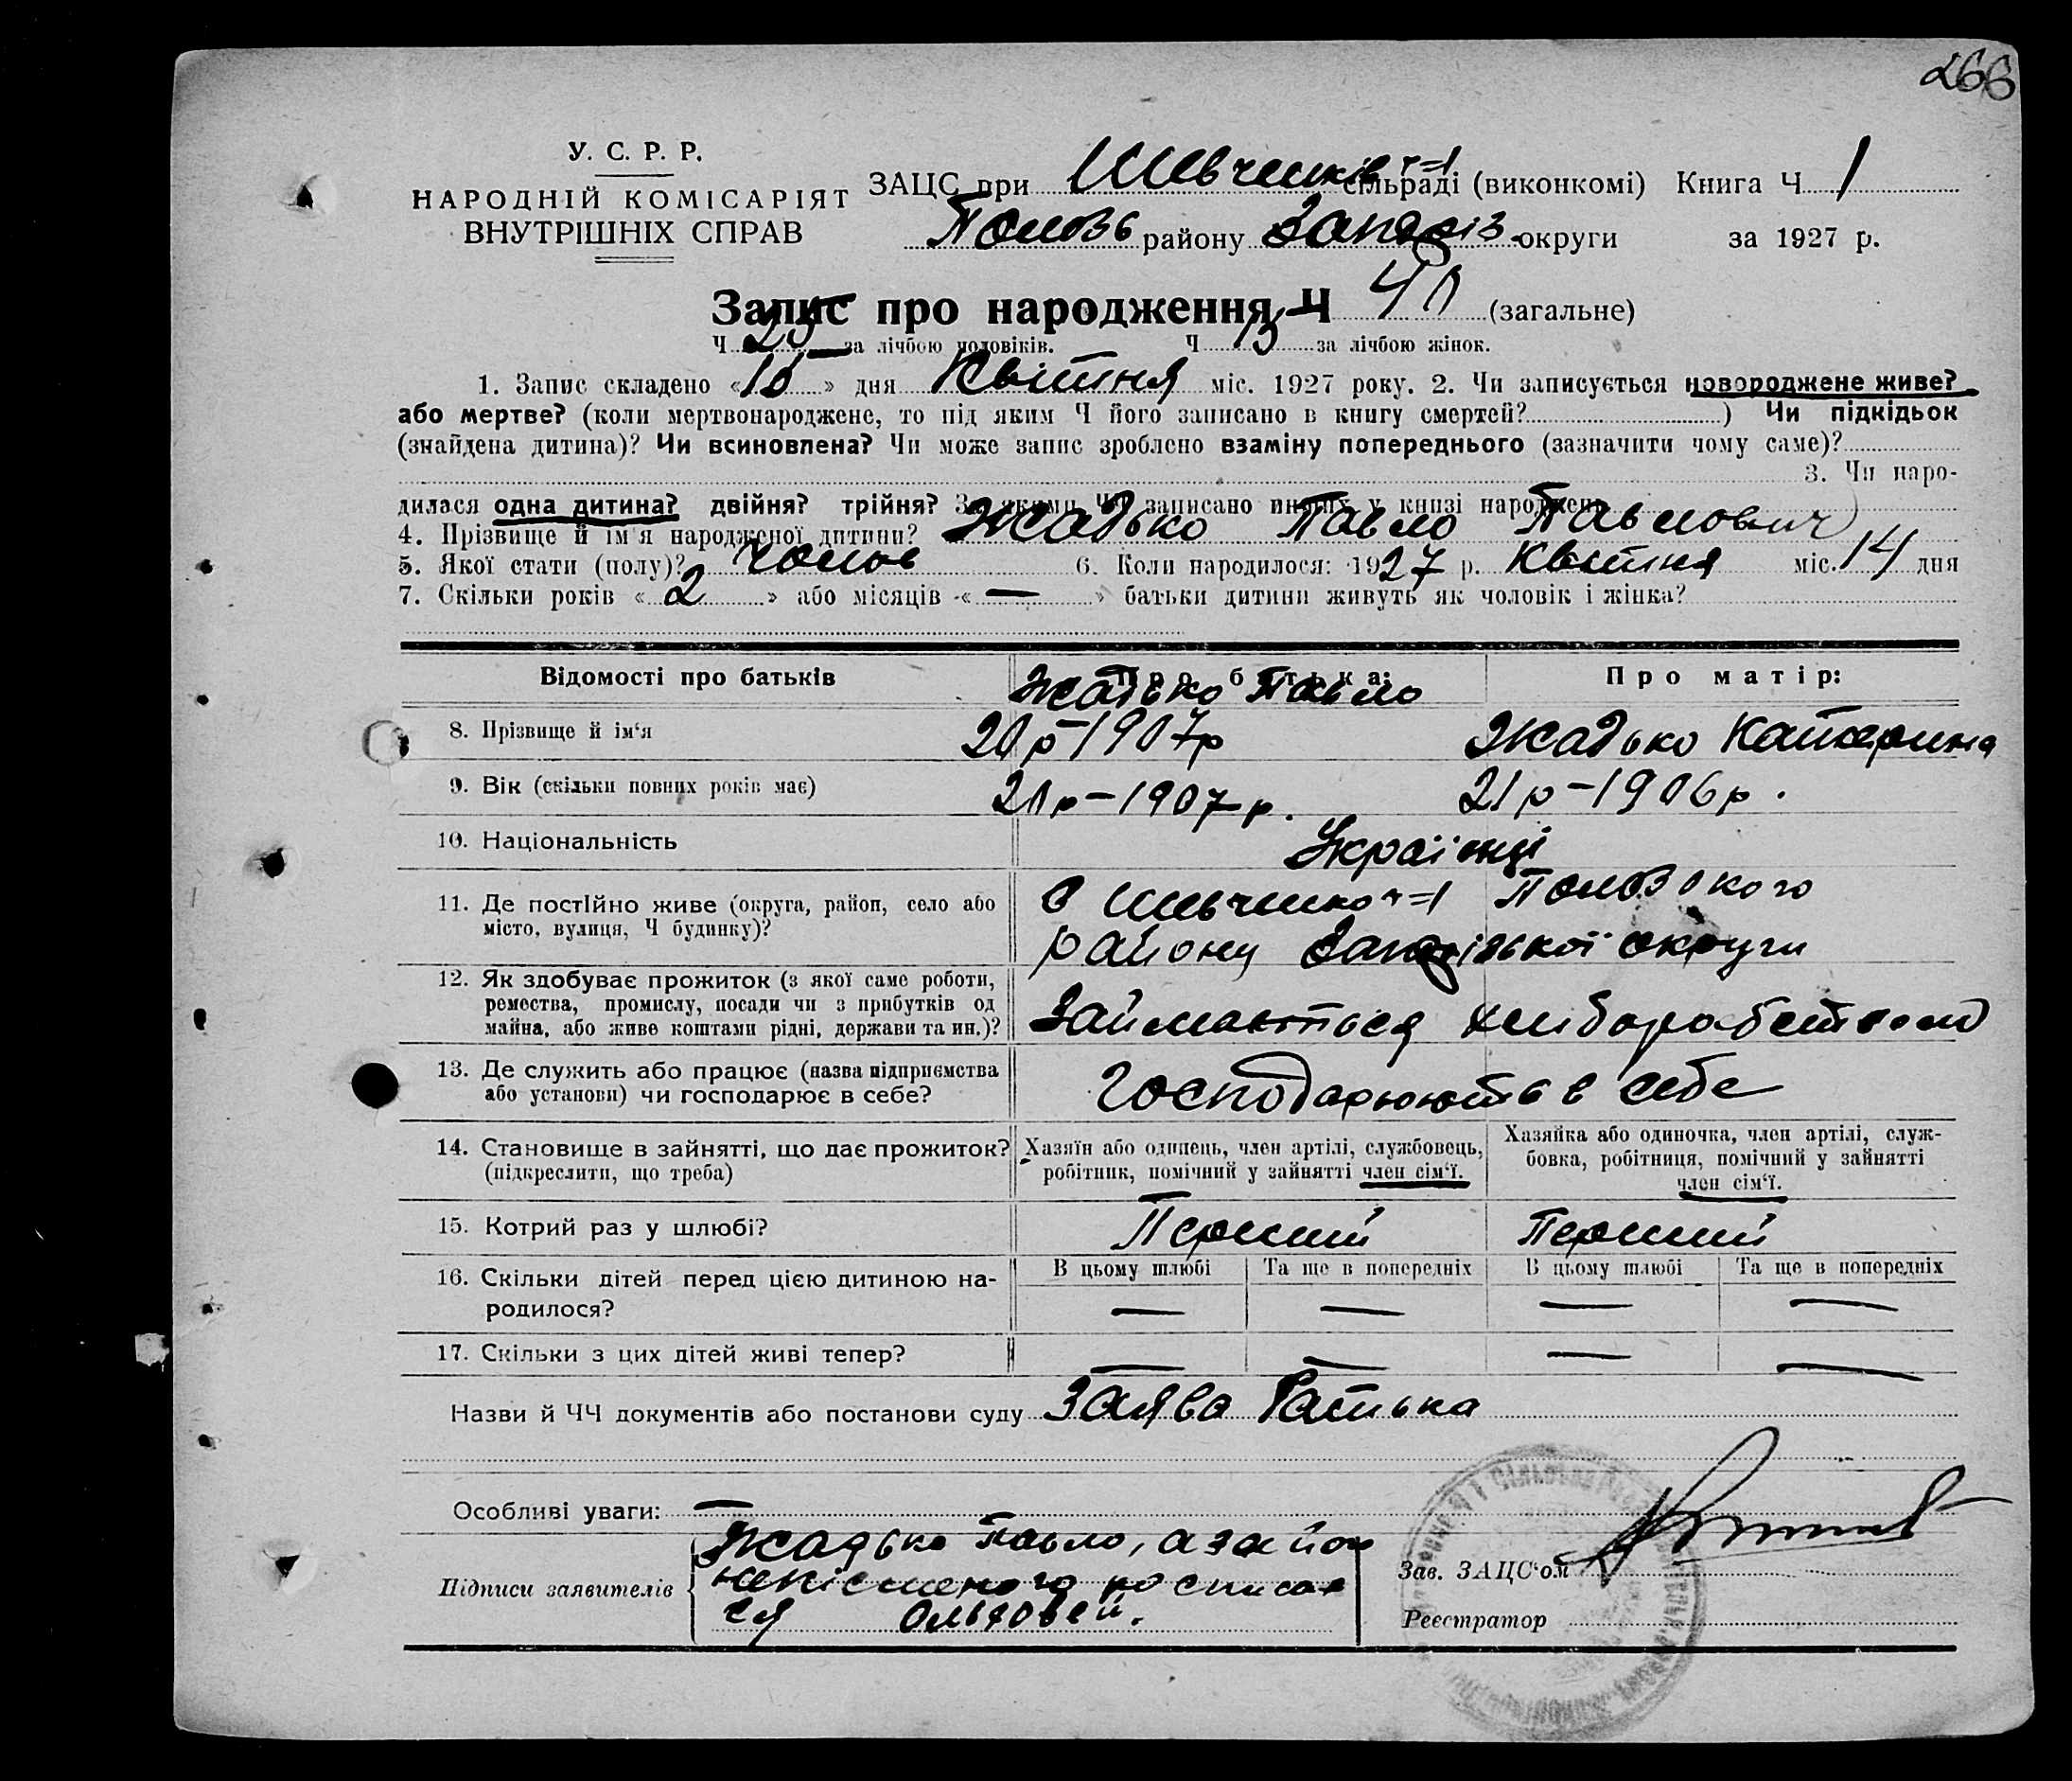 266
У. С. Р. Р.
НАРОДНІЙ КОМІСАРІЯТ
ВНУТРІШНІХ СПРАВ
ЗАЦС при Шевченків ч=1 сільраді (виконкомі) Книга Ч 1
Пологів району Запоріз. округи за 1927 р.
Запис про народження Ч 40 (загальне)
Ч за лічбою чоловіків. Ч за лічбою жінок.
1. Запис складено « » дня Квітня міс. 1927 року. 2. Чи записується новороджене живе?
або мертве? (коли мертвонароджене, то під яким Ч його записано в книгу смертей? ) Чи підкідьок
(знайдена дитина)? Чи всиновлена? Чи може запис зроблено взаміну попереднього (зазначити чому саме)?
3. Чи наро-
дилася одна дитина? двійня? трійня? За якими Ч записано инших у книзі народжень
4. Прізвище й ім'я народженої дитини? Жадько Павло Павлович
5. Якої стати (полу)? чолов 6. Коли народилося: 1927 р. Квітня міс. 14 дня
7. Скільки років « 2 » або місяців « — » батьки дитини живуть як чоловік і жінка?
Відомості про батьків Про батька: Про матір:
Жадько Павло
8. Прізвище й ім'я 20 р-1907р Жадько Катерина
9. Вік (скільки повних років має) 20 р-1907 р. 21 р-1906 р.
10. Національність Українці
11. Де постійно живе (округа, район, село або місто, вулиця, Ч будинку)? с Шевченко ч=1 Пологівского
району Запорізької округи
12. Як здобуває прожиток (з якої саме роботи,
ремества, промислу, посади чи з прибутків од
майна, або живе коштами рідні, держави та ин.)? Займаються хлиборобством
13. Де служить або працює (назва підприємства
або установи) чи господарює в себе? Господарюють в себе
14. Становище в зайнятті, що дає прожиток?
(підкреслити, що треба)
Хазяїн або одинець, член артілі, службовець,
робітник, помічний у зайнятті член сім'ї.
Хазяйка або одиночка, член артілі, служ-
бовка, робітниця, помічний у зайнятті
член сім'ї.
15. Котрий раз у шлюбі? Перший Перший
16. Скільки дітей перед цією дитиною на-
родилося?
В цьому шлюбі Та ще в попередніх В цьому шлюбі Та ще в попередніх
— — — —
17. Скільки з цих дітей живі тепер? — — — —
Назви й ЧЧ документів або постанови суду Заява Батька
Особливі уваги: —
Підписи заявителів
Жадько Павло, а за його
неписменого росписав
ся
Зав. ЗАЦС'ом
Реєстратор